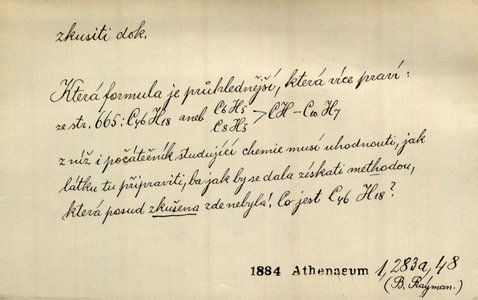 zkusiti dok.
Která formula je průhlednější, která více praví:
ze str. 665: C₄₆H₁₈ aneb C₆H₅ C₈H₅ > CH – C₁₀H₇
z níž i počátečník studující chemie musí uhodnouti, jak
látku tu připraviti, ba jak by se dala získati methodou,
která posud zkušena zde nebyla! Co jest C₄₆ H₁₈?
1884 Athenaeum 1,283a,48
(B. Rayman.)